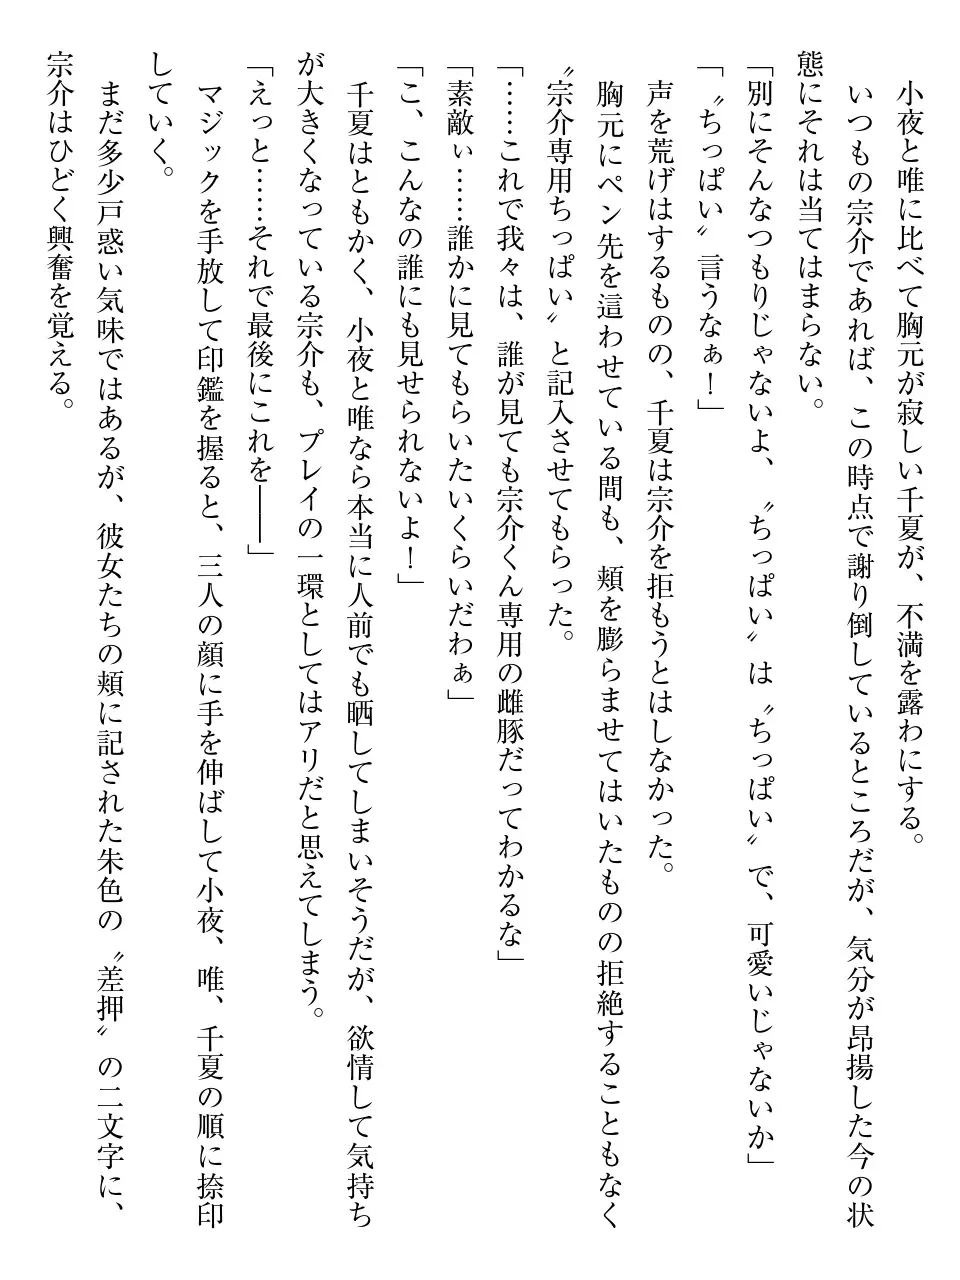 小夜と唯に比べて胸元が寂しい千夏が、不満を露わにする。
　いつもの宗介であれば、この時点で謝り倒しているところだが、気分が昂揚した今の状
態にそれは当てはまらない。
「別にそんなつもりじゃないよ、〝ちっぱい〟は〝ちっぱい〟で、可愛いじゃないか」
「〝ちっぱい〟言うなぁ！」
　声を荒げはするものの、千夏は宗介を拒もうとはしなかった。
　胸元にペン先を這わせている間も、頬を膨らませてはいたものの拒絶することもなく
〝宗介専用ちっぱい〟と記入させてもらった。
「……これで我々は、誰が見ても宗介くん専用の雌豚だってわかるな」
「素敵ぃ……誰かに見てもらいたいくらいだわぁ」
「こ、こんなの誰にも見せられないよ！」
　千夏はともかく、小夜と唯なら本当に人前でも晒してしまいそうだが、欲情して気持ち
が大きくなっている宗介も、プレイの一環としてはアリだと思えてしまう。
「えっと……それで最後にこれを――」
　マジックを手放して印鑑を握ると、三人の顔に手を伸ばして小夜、唯、千夏の順に捺印
していく。
　まだ多少戸惑い気味ではあるが、彼女たちの頬に記された朱色の〝差押〟の二文字に、
宗介はひどく興奮を覚える。